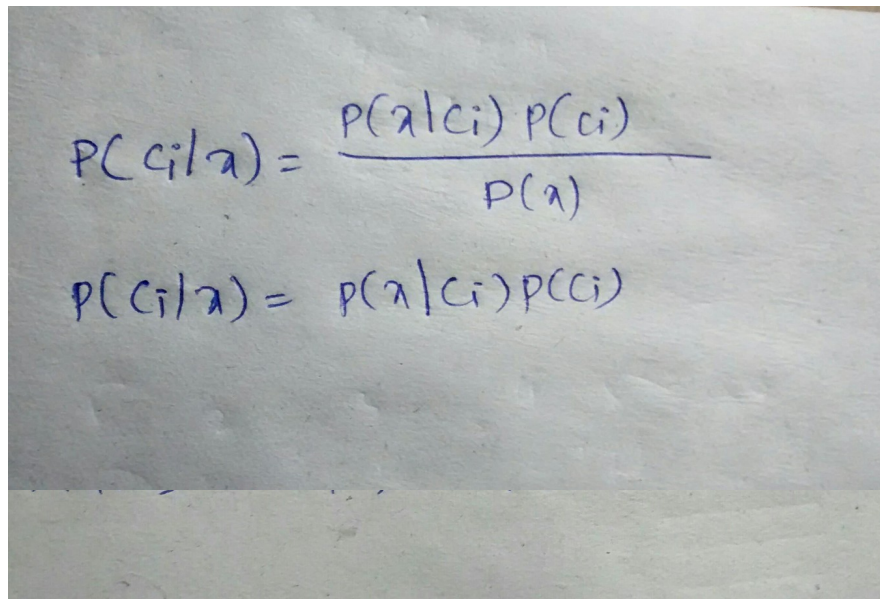 P(Ci|x) = P(x|Ci) P(Ci)
P(x)
P(Ci|x) = P(x|Ci) P(Ci)